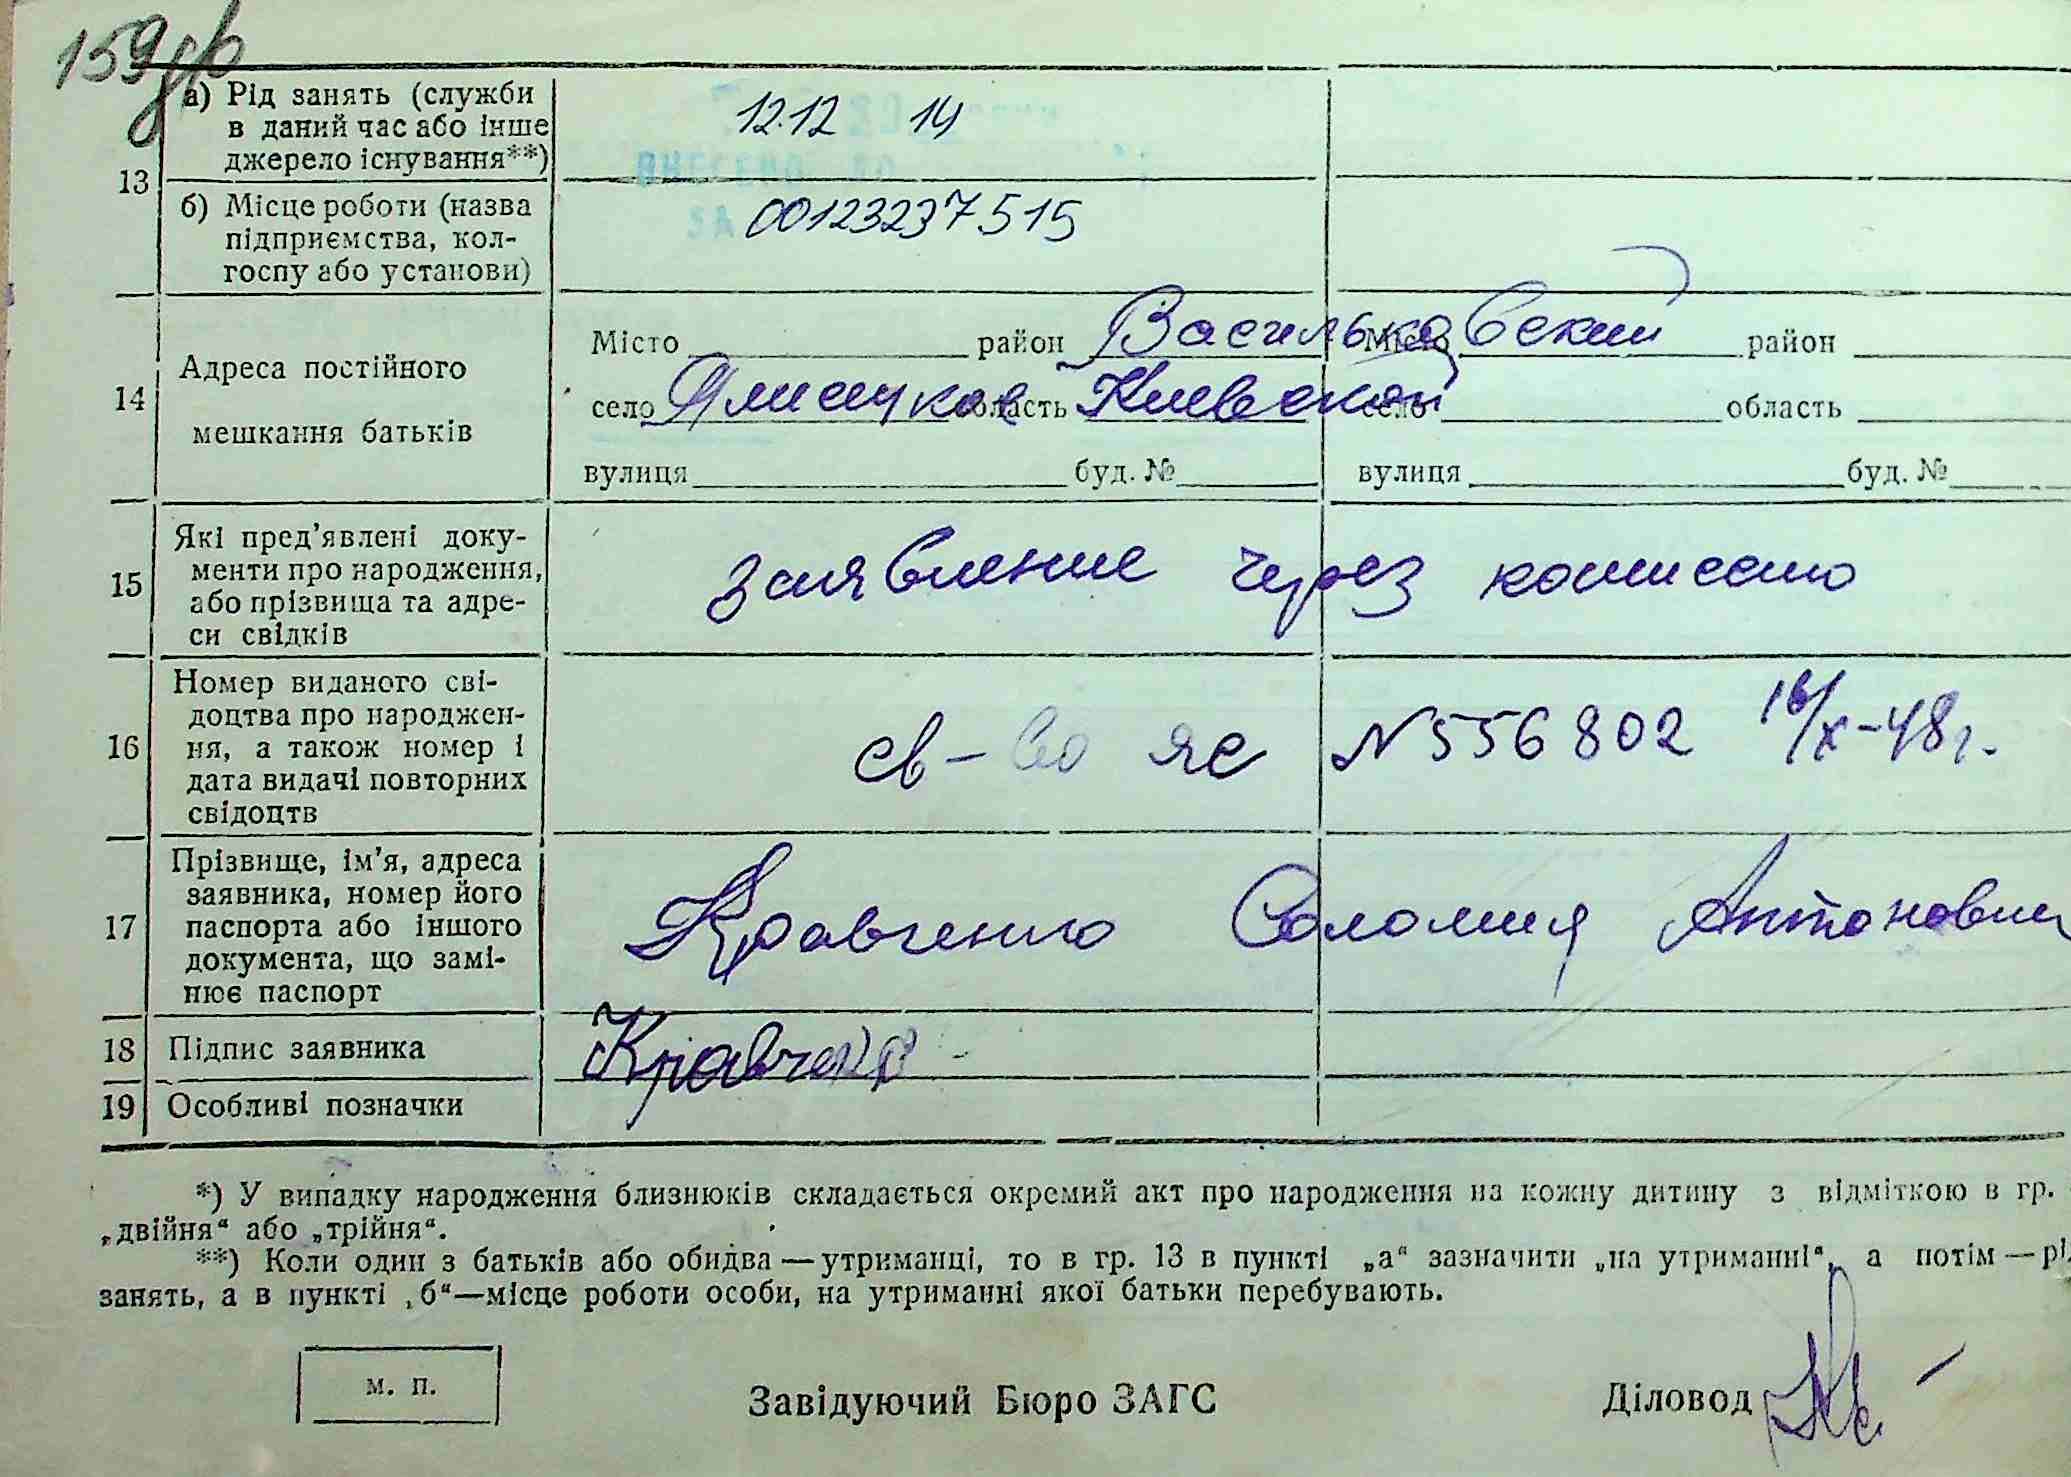 159
13
а) Рід занять (служби
в даний час або інше
джерело існування**)
12.12 14
ВНЕСЕНО ДО
б) Місце роботи (назва
підприємства, кол-
госпу або установи)
ЗА
00123237515
14
Адреса постійного
мешкання батьків
Місто район Васильковский Місто район
село область Киевской село область
вулиця буд. № вулиця буд. №
15
Які пред'явлені доку-
менти про народження,
або прізвища та адре-
си свідків
заявление через комиссию
16
Номер виданого сві-
доцтва про народжен-
ня, а також номер і
дата видачі повторних
свідоцтв
св-во яс N 556802 16/X-48г.
17
Прізвище, ім'я, адреса
заявника, номер його
паспорта або іншого
документа, що замі-
нює паспорт
Кравченко Соломия Антоновна
18 Підпис заявника
Кравченко
19 Особливі позначки
*) У випадку народження близнюків складається окремий акт про народження на кожну дитину з відміткою в гр.
„двійня“ або „трійня“.
**) Коли один з батьків або обидва — утриманці, то в гр. 13 в пункті „а“ зазначити „на утриманні“, а потім — рі
занять, а в пункті „б“—місце роботи особи, на утриманні якої батьки перебувають.
м. п.
Завідуючий Бюро ЗАГС
Діловод